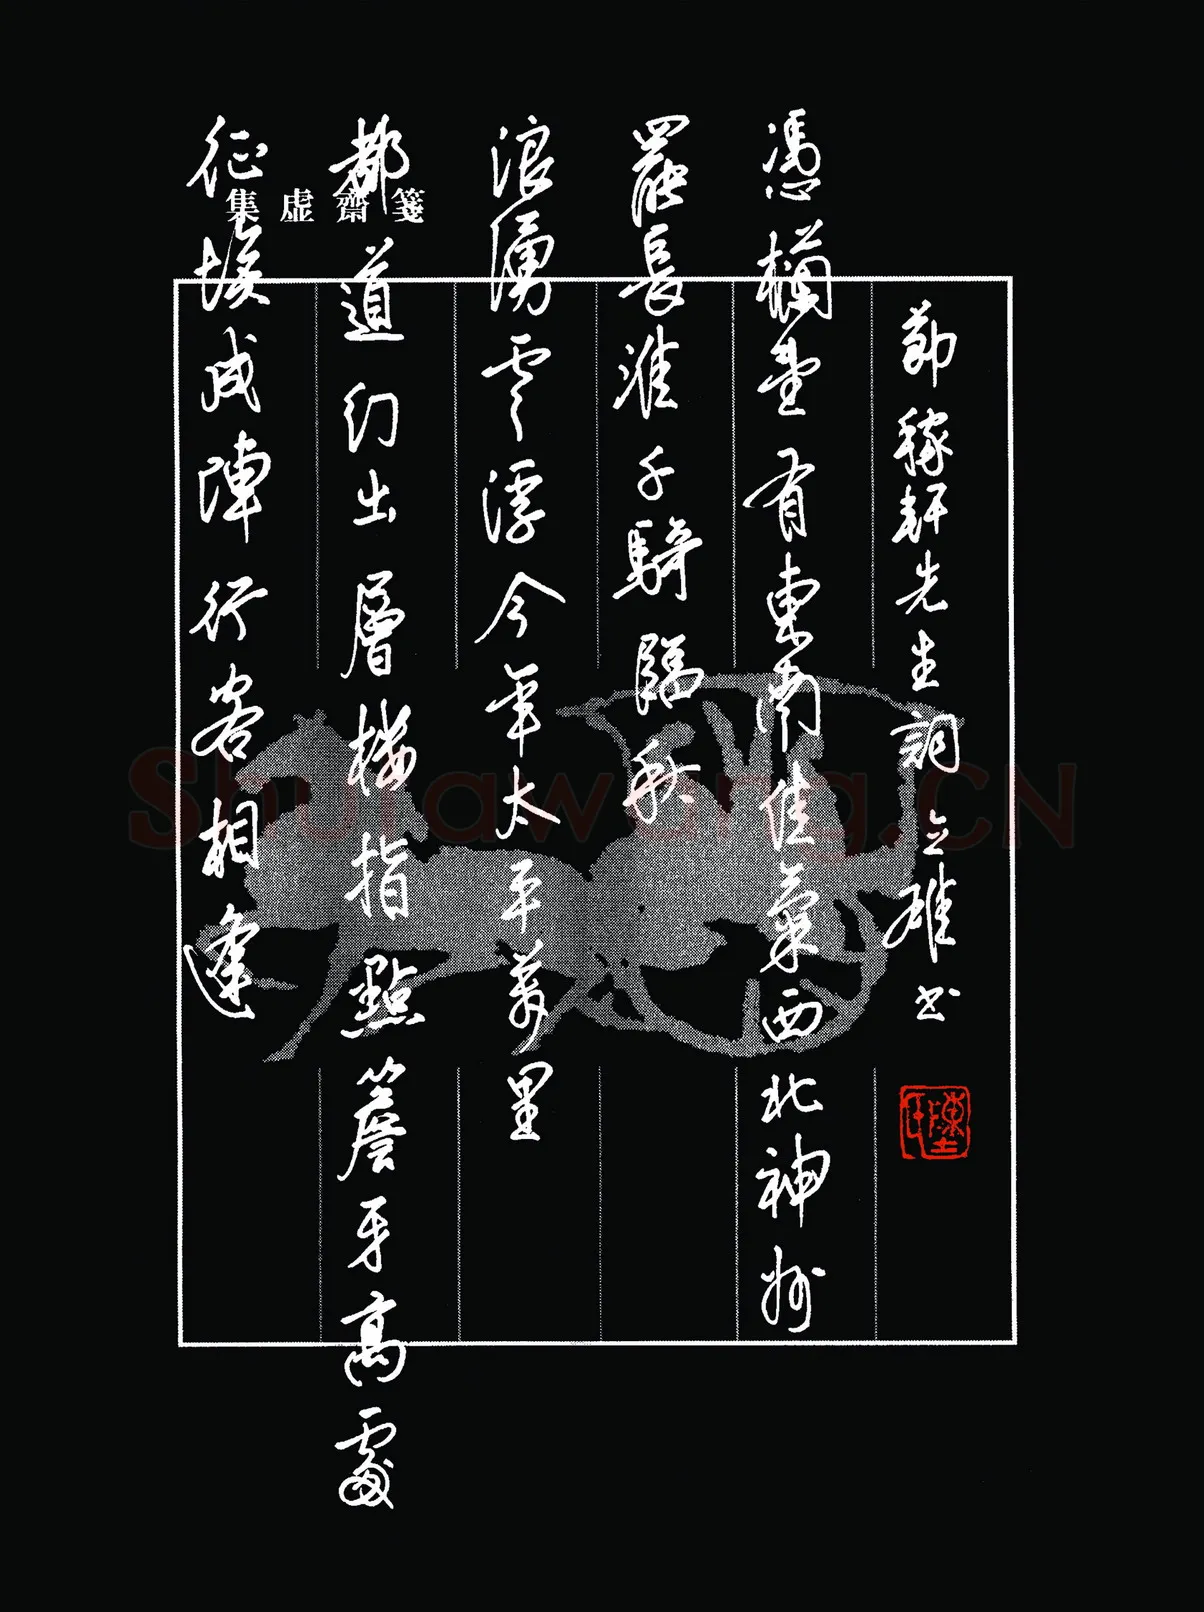 集虛齋箋
征埃成陣行客相逢
都道幻出層楼指點簷牙高處
浪湧雲浮今年太平萬里
罷長淮千騎臨秋
憑欄望有東南佳氣西北神州
節稼軒先生詞 立雄书
Shufawang.CN